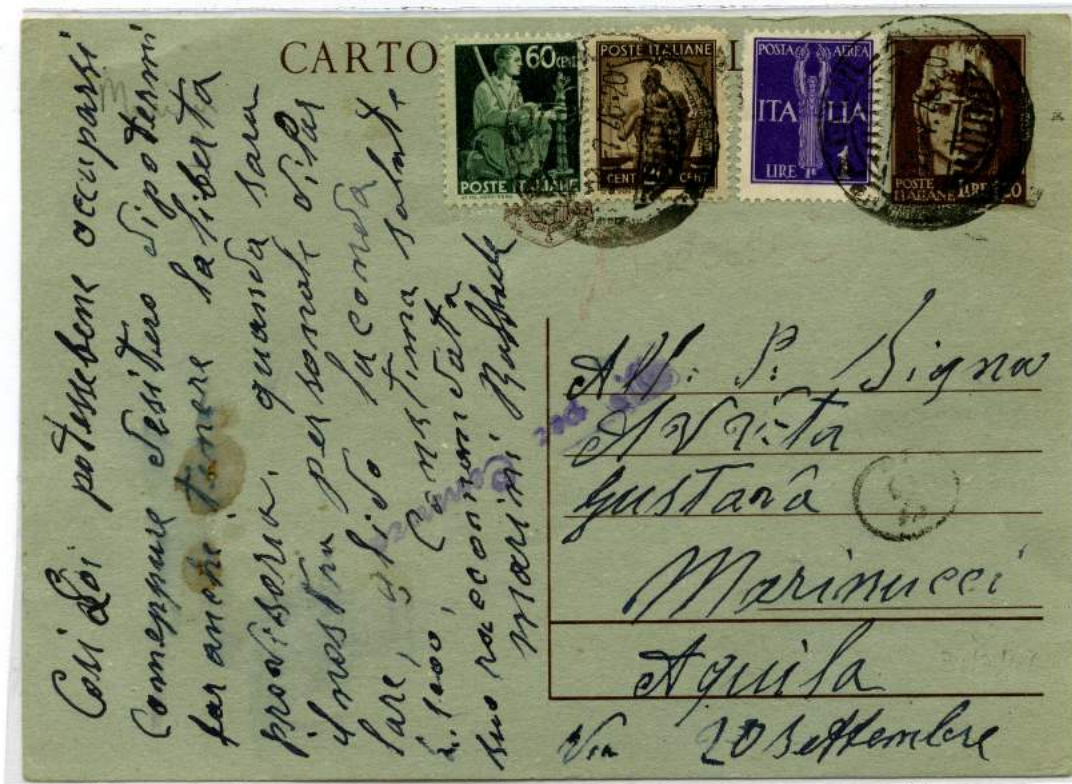 CARTO L
60 CENT.
POSTE ITALIANE
POSTE ITALIANE
CENT CENT
POSTA AEREA
ITALIA
LIRE 1
POSTE
ITALIANE LIRE 1,20
Così Loi potessebene occuparsi
Comeppure desidero di potermi
far anche tenere la libertà
provisoria, quando sara
il nostro personale
lare, gli do
L. 1000, Con stima salute
suo raccomandata
Marini Raffaele
All: P. Signa
Gustavo
Marinucci
Aquila
Via 20 Settembre